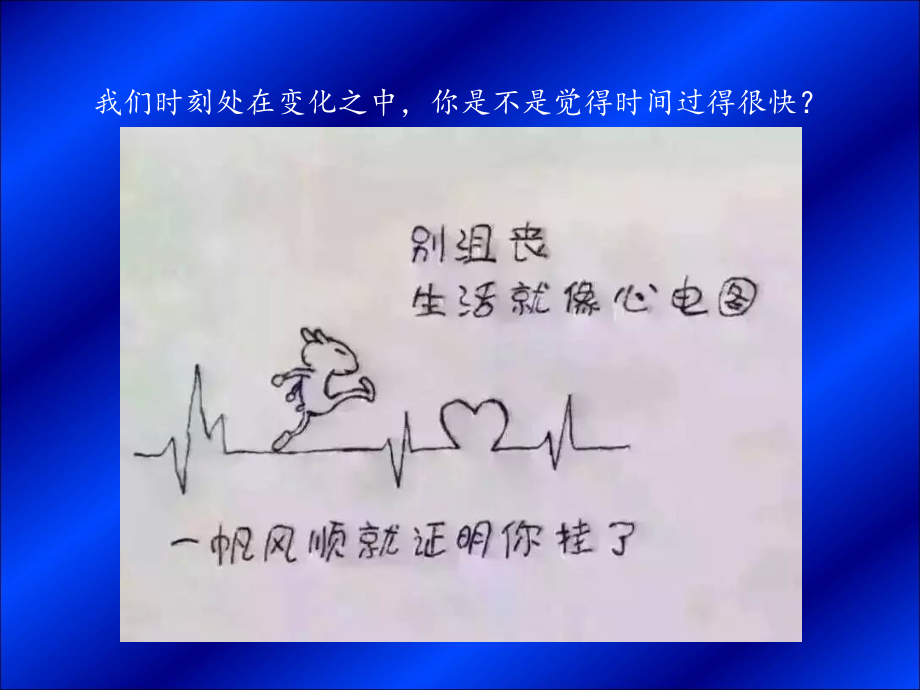 我们时刻处在变化之中，你是不是觉得时间过得很快？
别沮丧
生活就像心电图
一帆风顺就证明你挂了